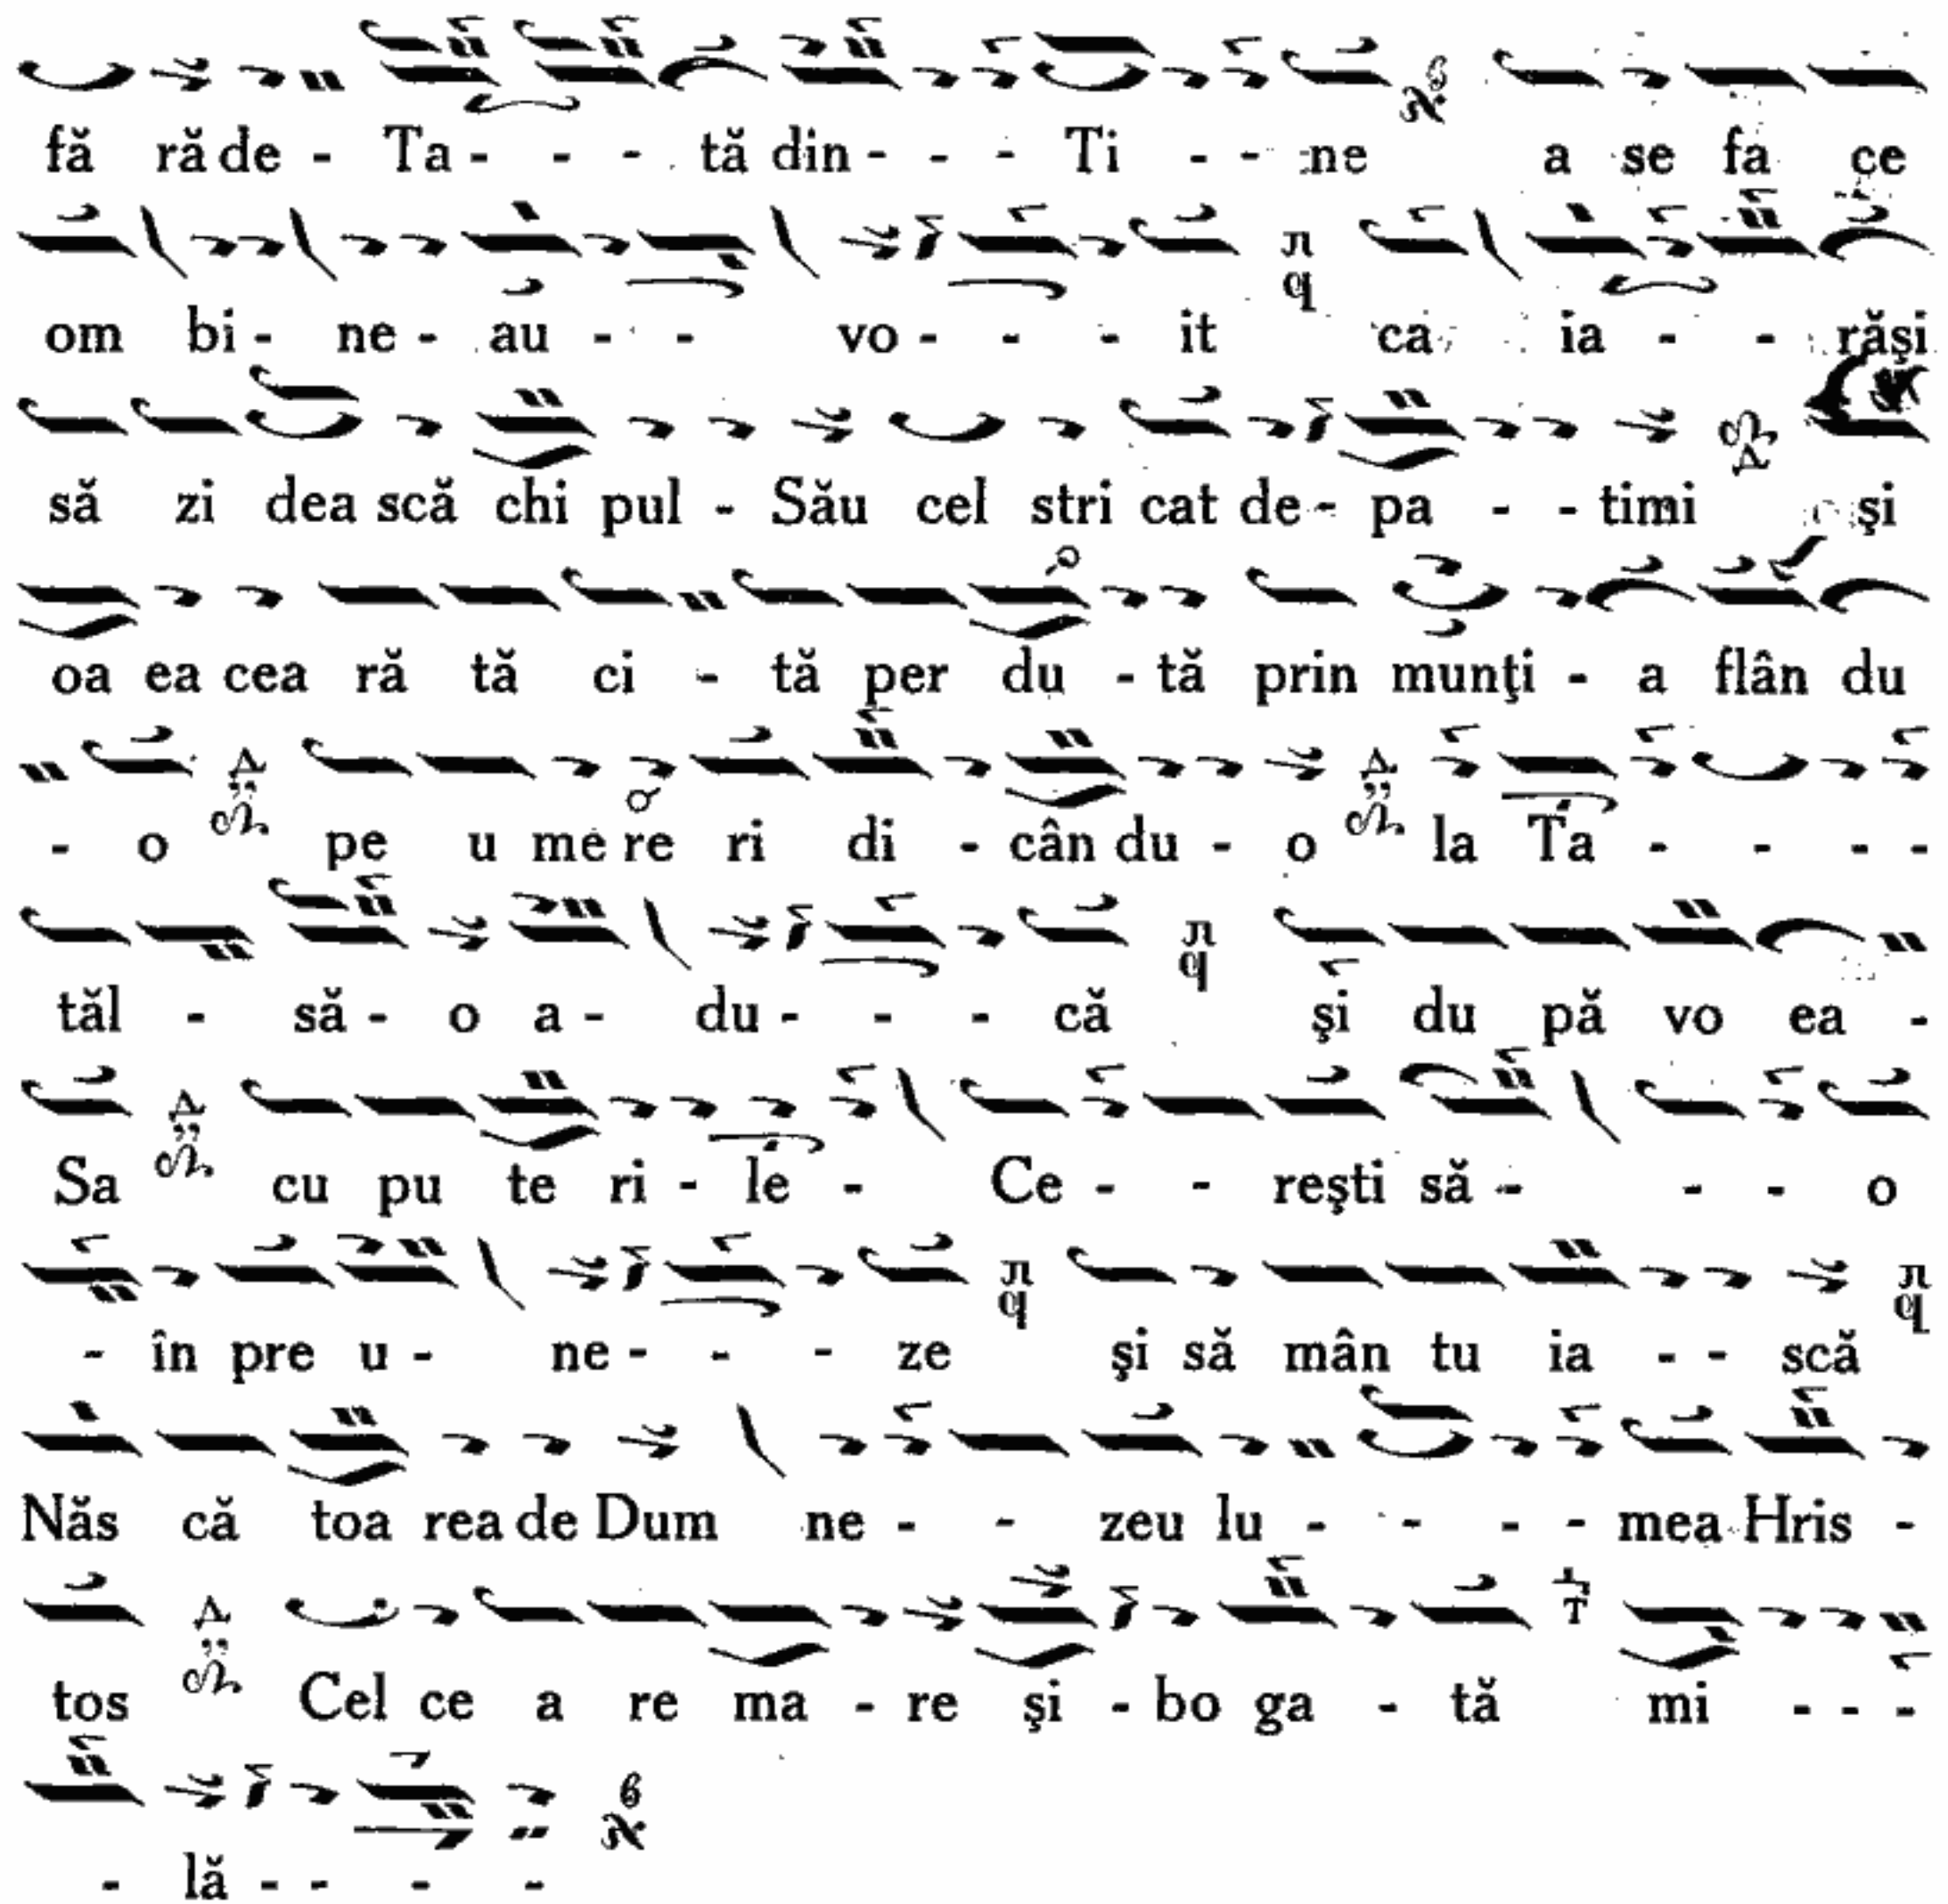 fă ră de - Ta - - - tă din - - - Ti - - ne a se fa ce
om bi - ne - au - - vo - - - it ca ia - - răşi
să zi dea scă chi pul - Său cel stri cat de - pa - - timi şi
oa ea cea ră tă ci - tă per du - tă prin munţi - a flân du
- o pe u me re ri di - cân du - o la Ta - - - -
tăl - să - o a - du - - - că şi du pă vo ea -
Sa cu pu te ri - le - Ce - - reşti să - - - o
- în pre u - ne - - - ze şi să mân tu ia - - scă
Năs că toa rea de Dum ne - - zeu lu - - - - mea Hris -
tos Cel ce a re ma - re şi - bo ga - tă mi - - -
- lă - - - -